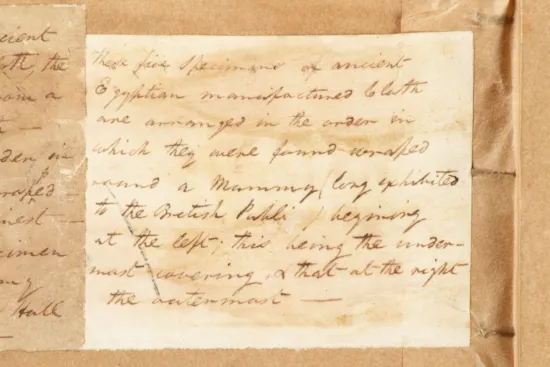 cient
oth, the
om a
th —
der in
raped —
inest —
cimen
ong
Hall
These five specimens of ancient
Egyptian manufactured Cloth
are arranged in the order in
which they were found wraped
round a Mummy (long exhibited
to the British Publi / begining
at the left; this being the under-
most covering, & that at the right
the outermost —